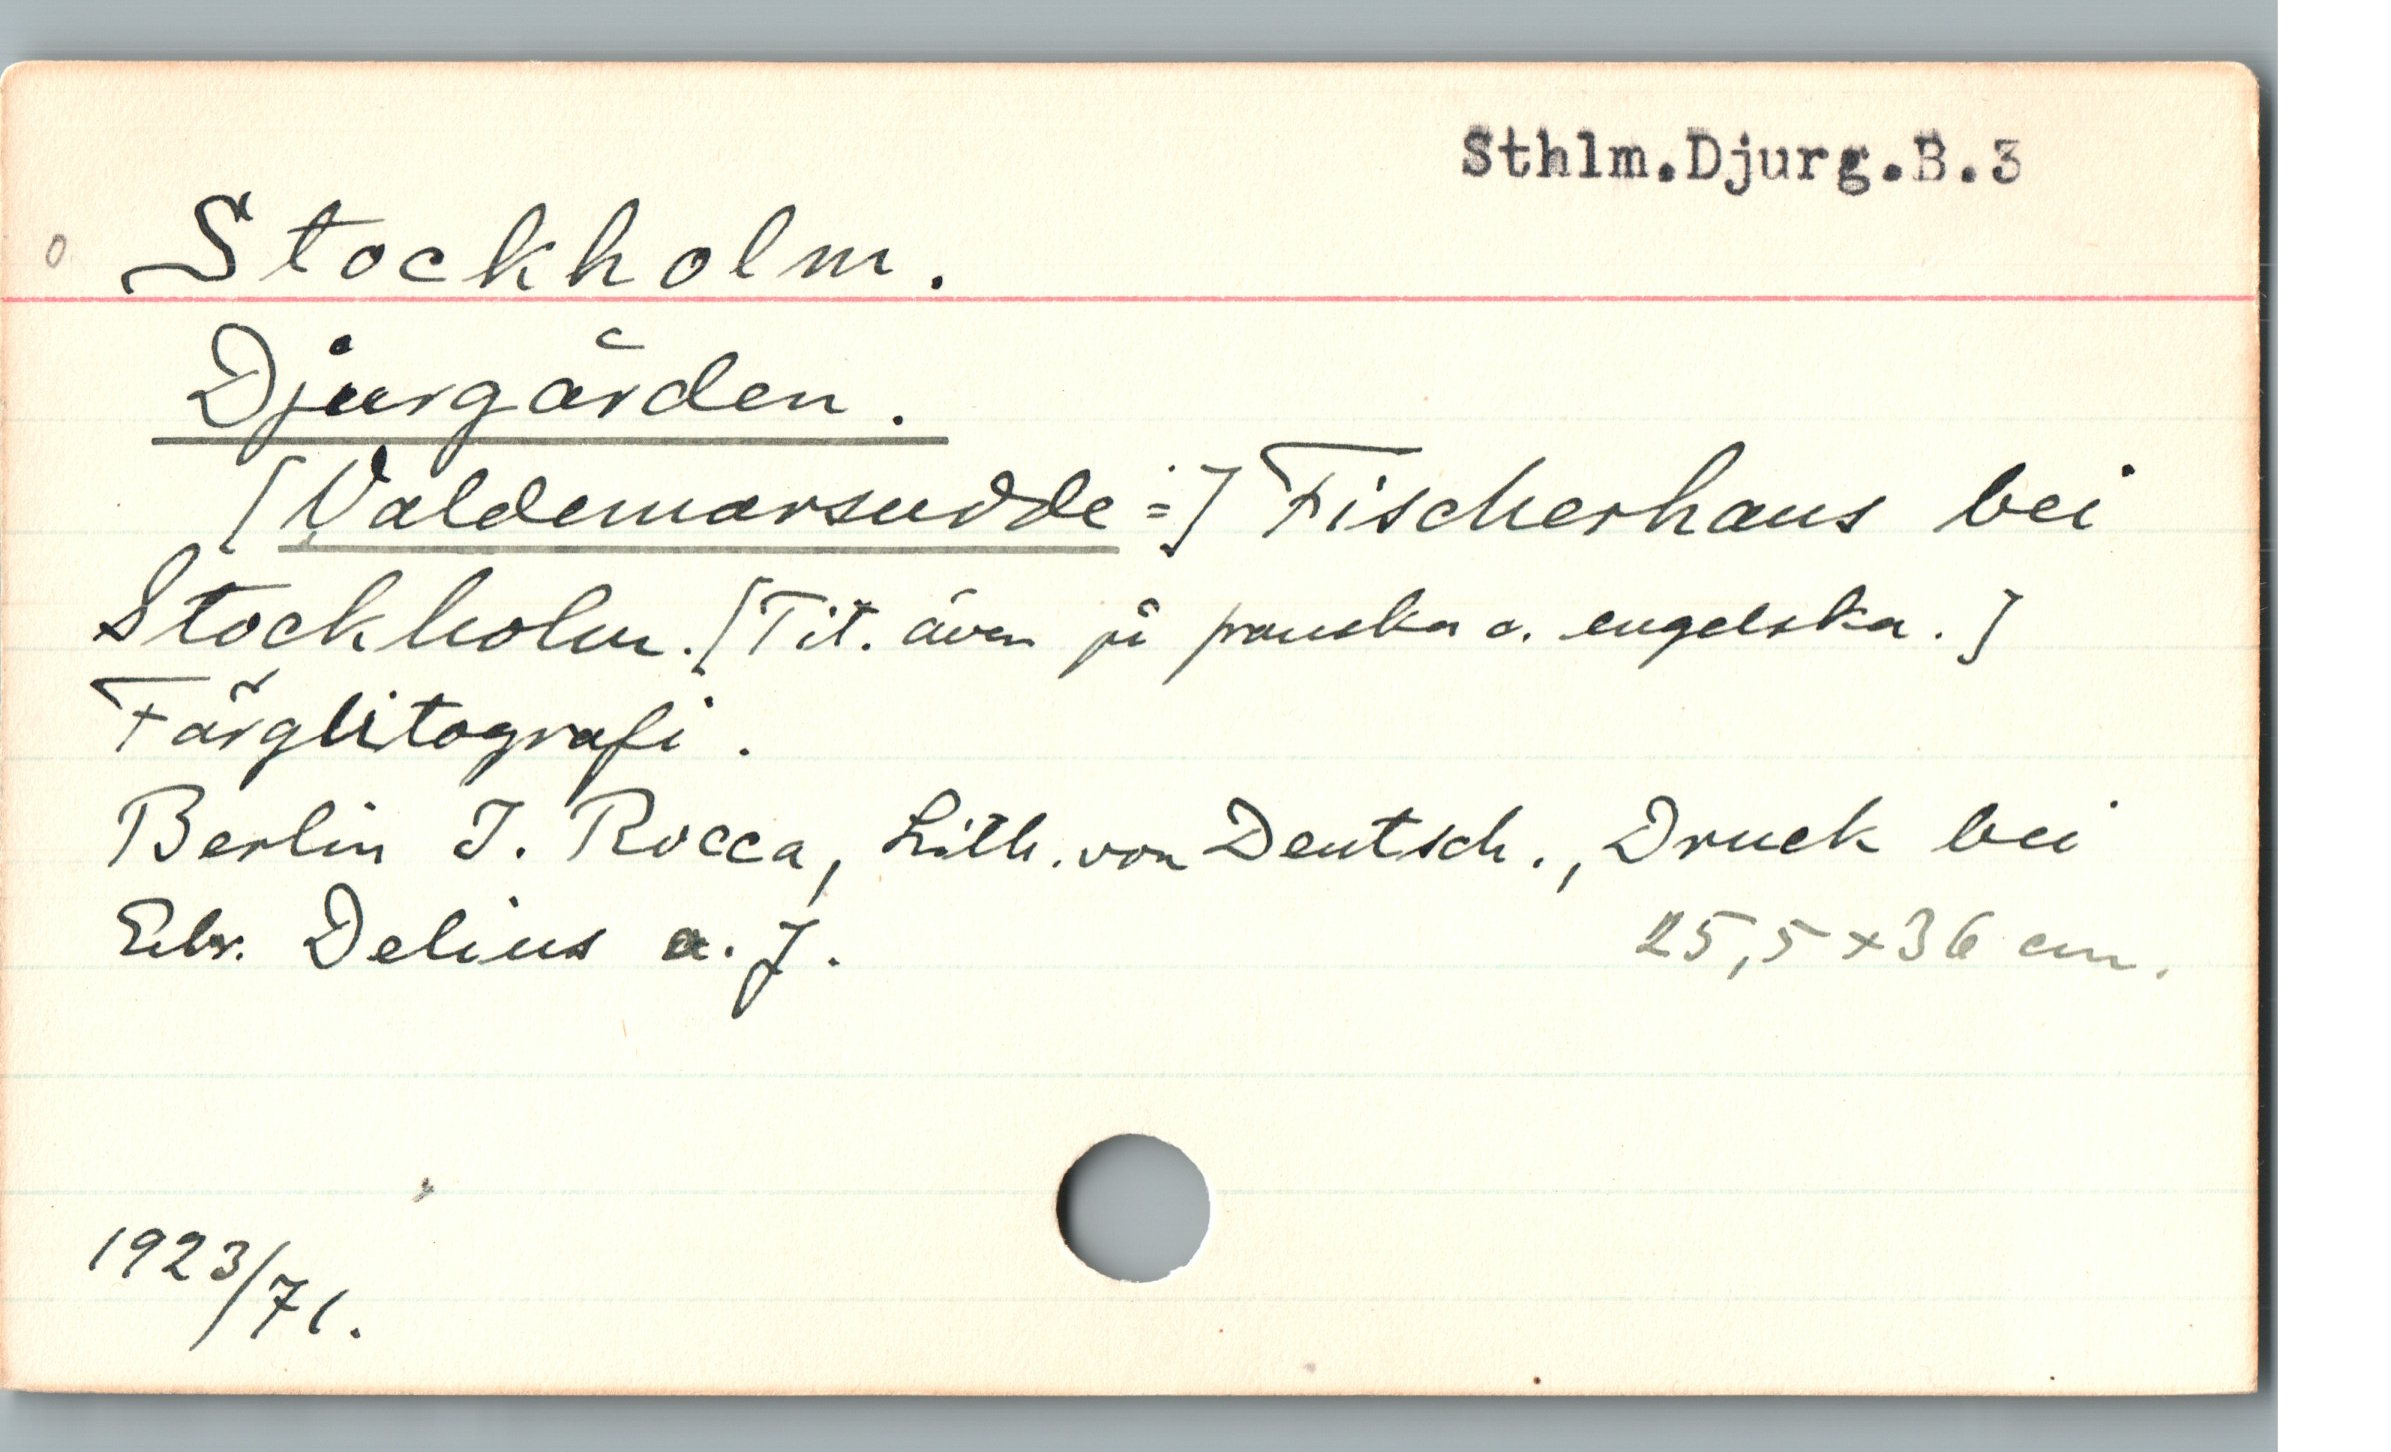 Sthlm.Djurg.B.3
0 Stockholm.
Djurgården.
[Valdemarsudde:=] Fischerhaus bei
Stockholm. [Tit. även på franska o. engelska.]
Färglitografi.
Berlin I. Rocca, Lith. von Deutsch., Druck bei
Ebr. Delius a. J.
25,5 x 36 cm.
1923/71.